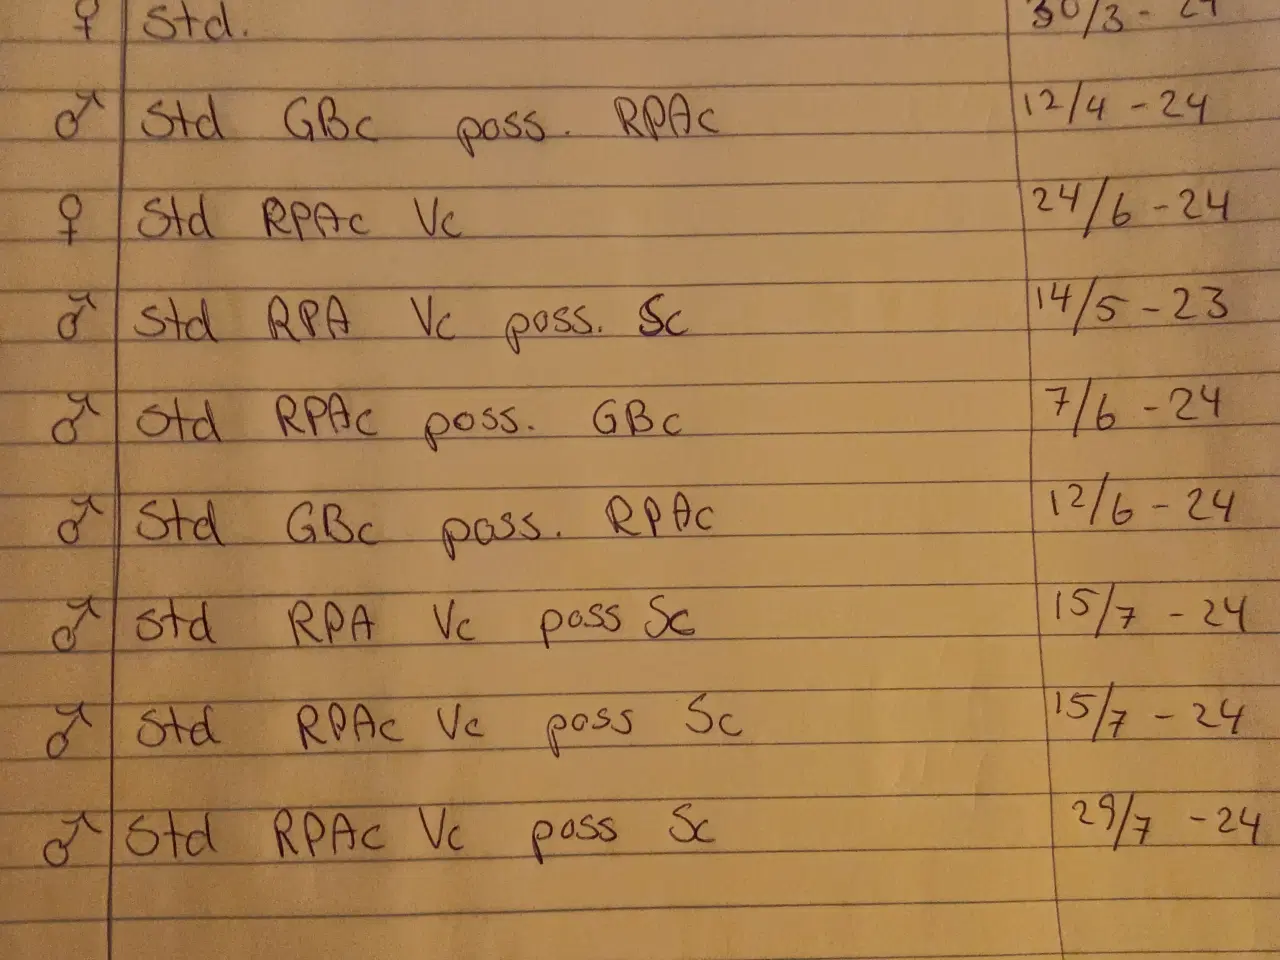 ♀ Std. 30/3 - 24
♂ Std GBc poss. RPAc 12/4 - 24
♀ Std RPAc Vc 24/6 - 24
♂ Std RPA Vc poss. Sc 14/5 - 23
♂ Std RPAc poss. GBc 7/6 - 24
♂ Std GBc poss. RPAc 12/6 - 24
♂ Std RPA Vc poss Sc 15/7 - 24
♂ Std RPAc Vc poss Sc 15/7 - 24
♂ Std RPAc Vc poss Sc 29/7 - 24